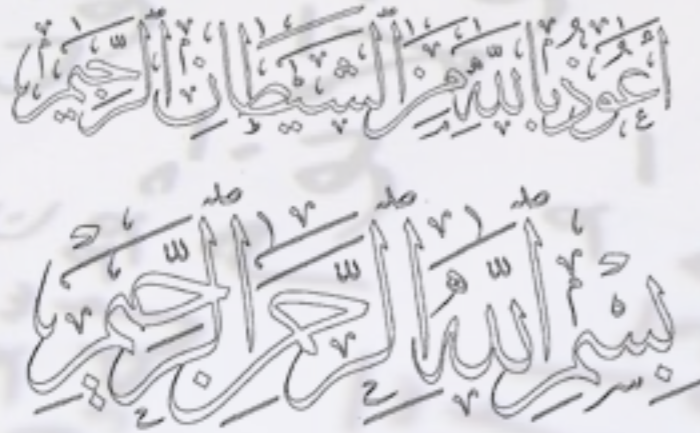 أعوذ بالله من الشيطان الرجيم
بسم الله الرحمن الرحيم